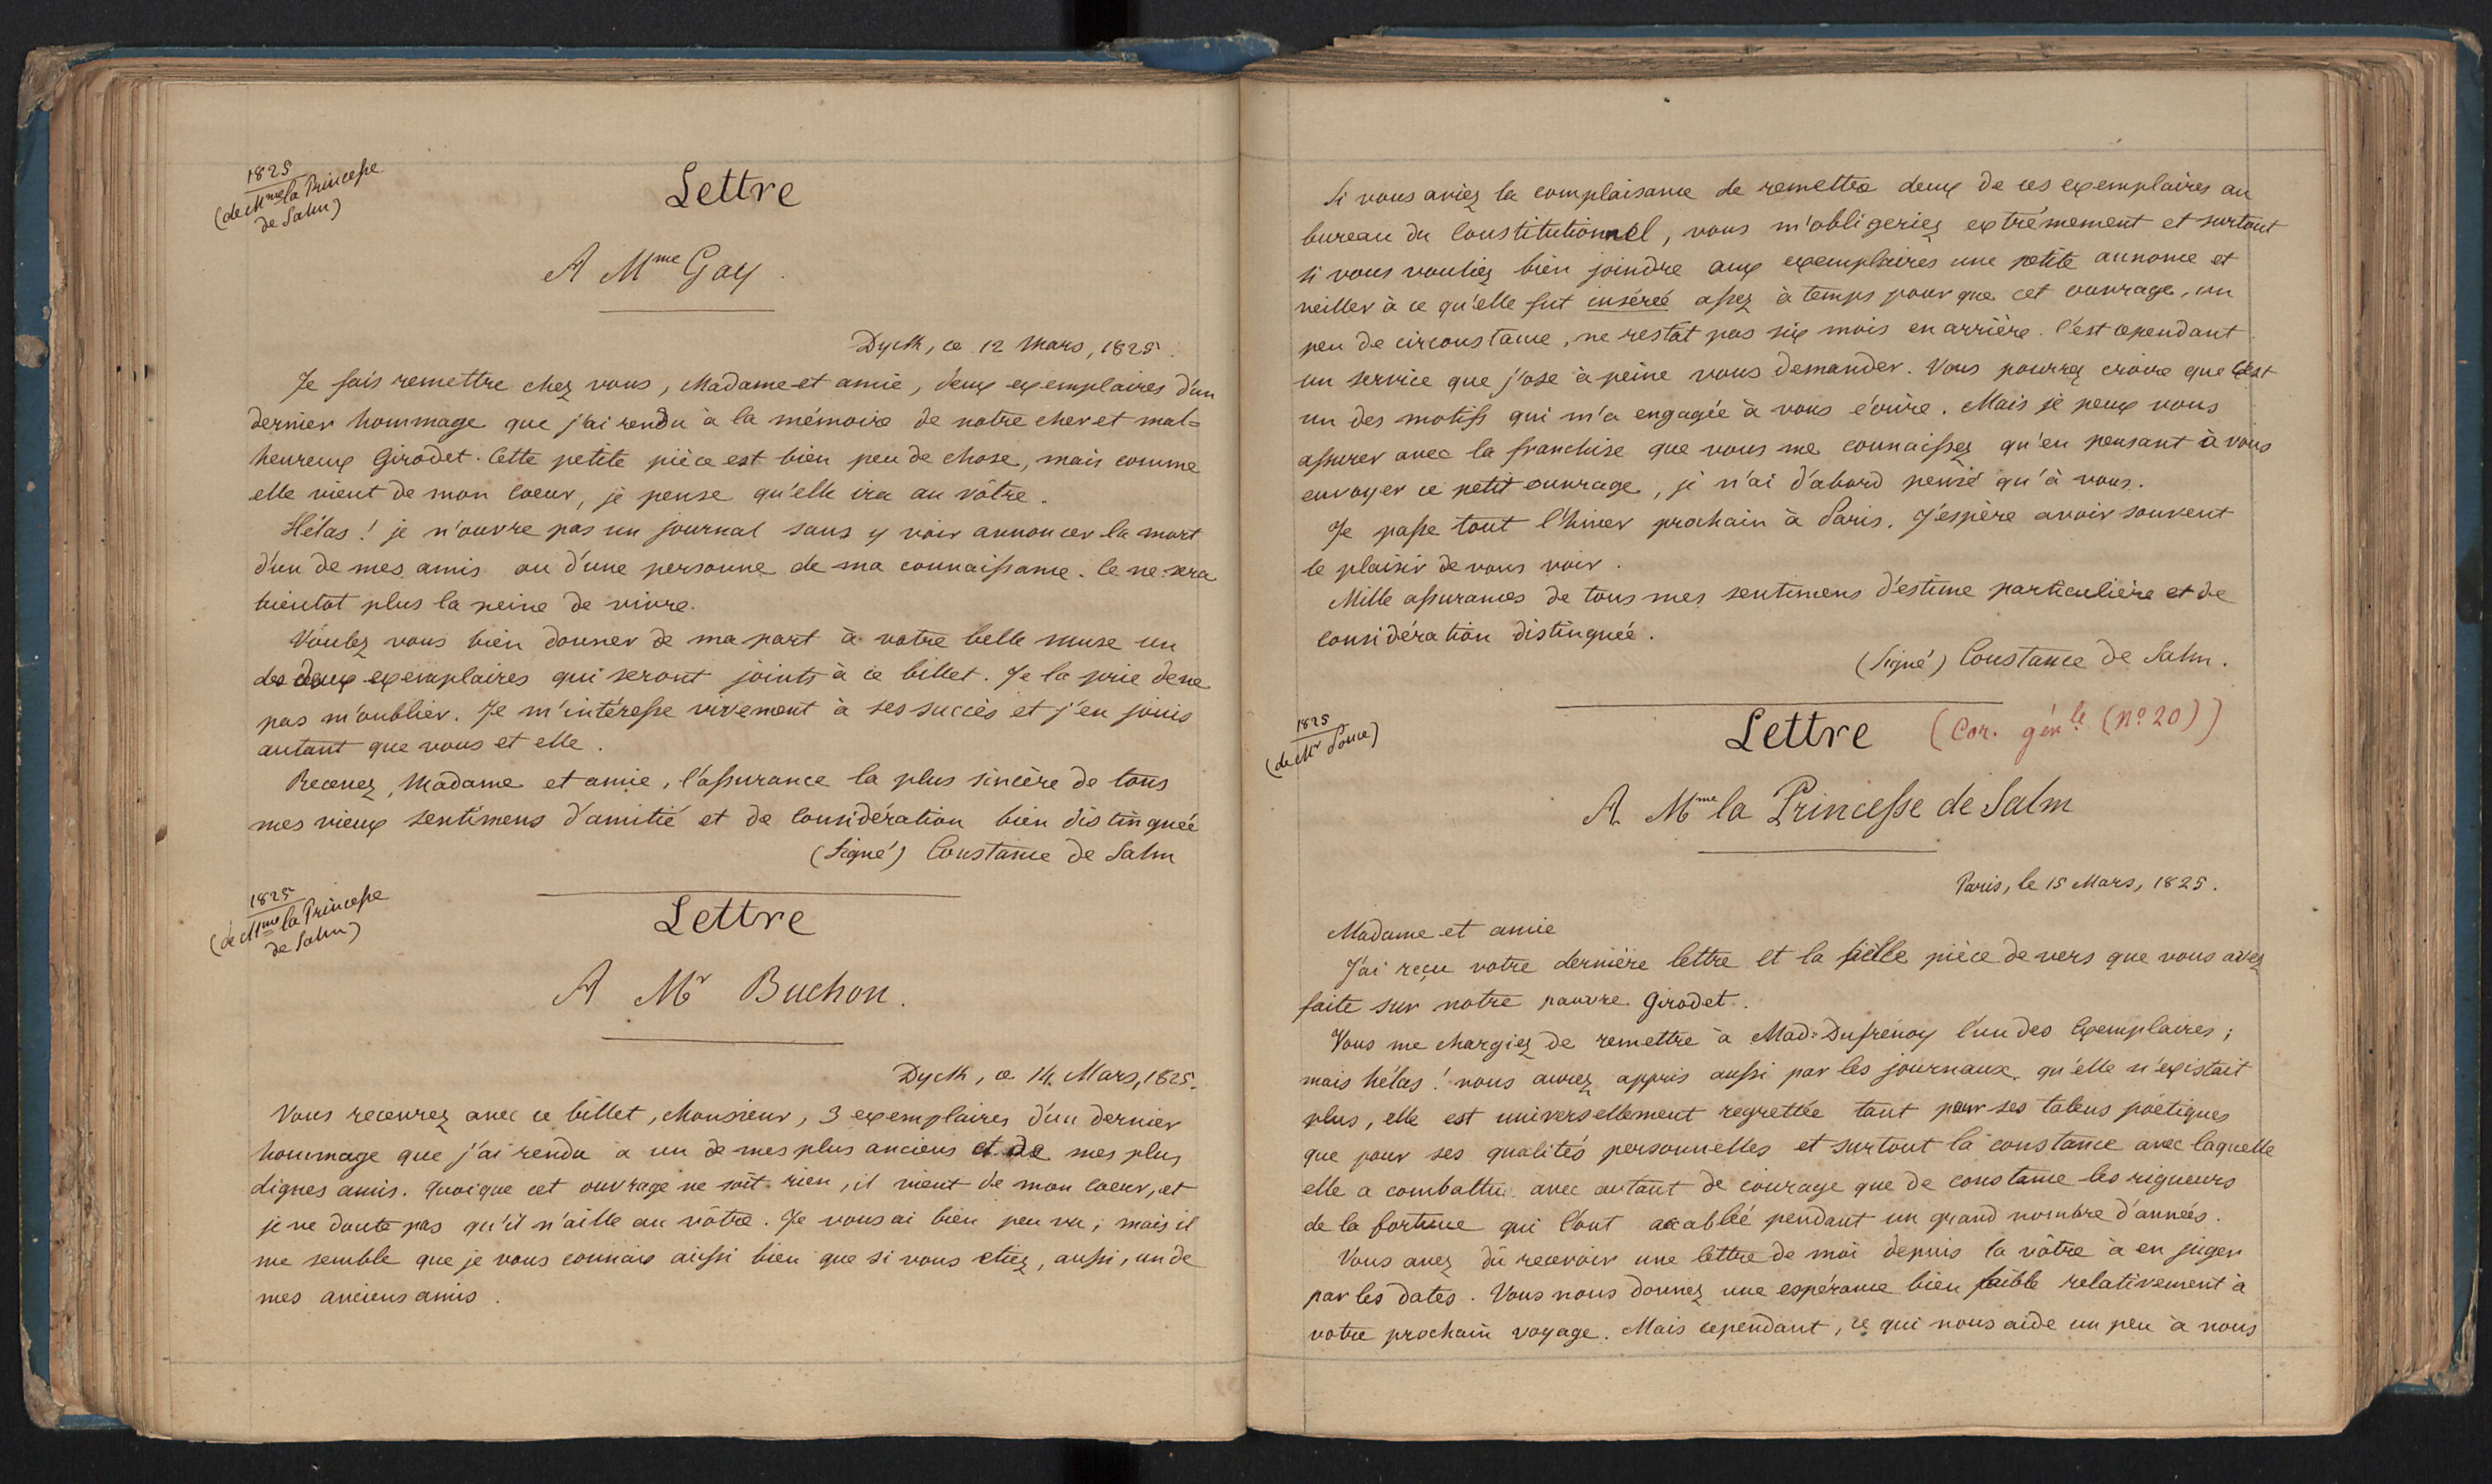 1825
(de Mme la Princesse
de Salm)
Lettre
A Mme Gay.
Dyck, ce 12 Mars, 1825.
Je fais remettre chez vous, Madame et amie, deux exemplaires d'un
dernier hommage que j'ai rendu à la mémoire de notre cher et mal=
heureux Girodet. Cette petite pièce est bien peu de chose, mais comme
elle vient de mon coeur, je pense qu'elle ira au vôtre.
Hélas! je n'ouvre pas un journal sans y voir annoncer la mort
d'un de mes amis ou d'une personne de ma connaissance. Ce ne sera
bientot plus la peine de vivre.
Voulez vous bien donner de ma part à votre belle muse un
des deux exemplaires qui seront joints à ce billet. Je la prie de ne
pas m'oublier. Je m'intéresse vivement à ses succès et j'en jouis
autant que vous et elle.
Recevez, Madame et amie, l'assurance la plus sincère de tous
mes vieux sentimens d'amitié et de considération bien distinguée
(Signé) Constance de Salm
1825
(de Mme la Princesse
de Salm)
Lettre
A Mr Buchon.
Dyck, ce 14 Mars, 1825.
Vous recevrez avec ce billet, Monsieur, 3 exemplaires d'un dernier
hommage que j'ai rendu à un de mes plus anciens et de mes plus
dignes amis. Quoique cet ouvrage ne soit rien, il vient de mon coeur, et
je ne doute pas qu'il n'aille au vôtre. Je vous ai bien peu vu; mais il
me semble que je vous connais aussi bien que si vous etiez, aussi, un de
mes anciens amis.
Si vous aviez la complaisance de remettre deux de ces exemplaires au
bureau du Constitutionnel, vous m'obligeriez extrêmement et surtout
si vous vouliez bien joindre aux exemplaires une petite annonce et
veiller à ce qu'elle fut insérée assez à temps pour que cet ouvrage, un
peu de circonstance, ne restât pas six mois en arrière. C'est cependant
un service que j'ose à peine vous demander. Vous pourrez croire que c'est
un des motifs qui m'a engagée à vous écrire. Mais je peux vous
assurer avec la franchise que vous me connaissez qu'en pensant à vous
envoyer ce petit ouvrage, je n'ai d'abord pensé qu'à vous.
Je passe tout l'hiver prochain à Paris. J'espère avoir souvent
le plaisir de vous voir.
Mille assurances de tous mes sentimens d'estime particulière et de
considération distinguée.
(Signé) Constance de Salm.
1825
(de Mr Ponce)
Lettre (Cor. génle (no 20))
A Mme la Princesse de Salm
Paris, le 15 Mars, 1825.
Madame et amie
J'ai reçu votre dernière lettre et la belle pièce de vers que vous avez
faite sur notre pauvre Girodet.
Vous me chargiez de remettre à Mad= Dufrenoy l'un des exemplaires;
mais hélas! vous aurez appris aussi par les journaux qu'elle n'existait
plus, elle est universellement regrettée tant pour ses talens poétiques
que pour ses qualités personnelles et surtout la constance avec laquelle
elle a combattu avec autant de courage que de constance les rigueurs
de la fortune qui l'ont accablée pendant un grand nombre d'années.
Vous avez dû recevoir une lettre de moi depuis la vôtre à en juger
par les dates. Vous nous donnez une espérance bien faible relativement à
votre prochain voyage. Mais cependant, ce qui nous aide un peu à nous